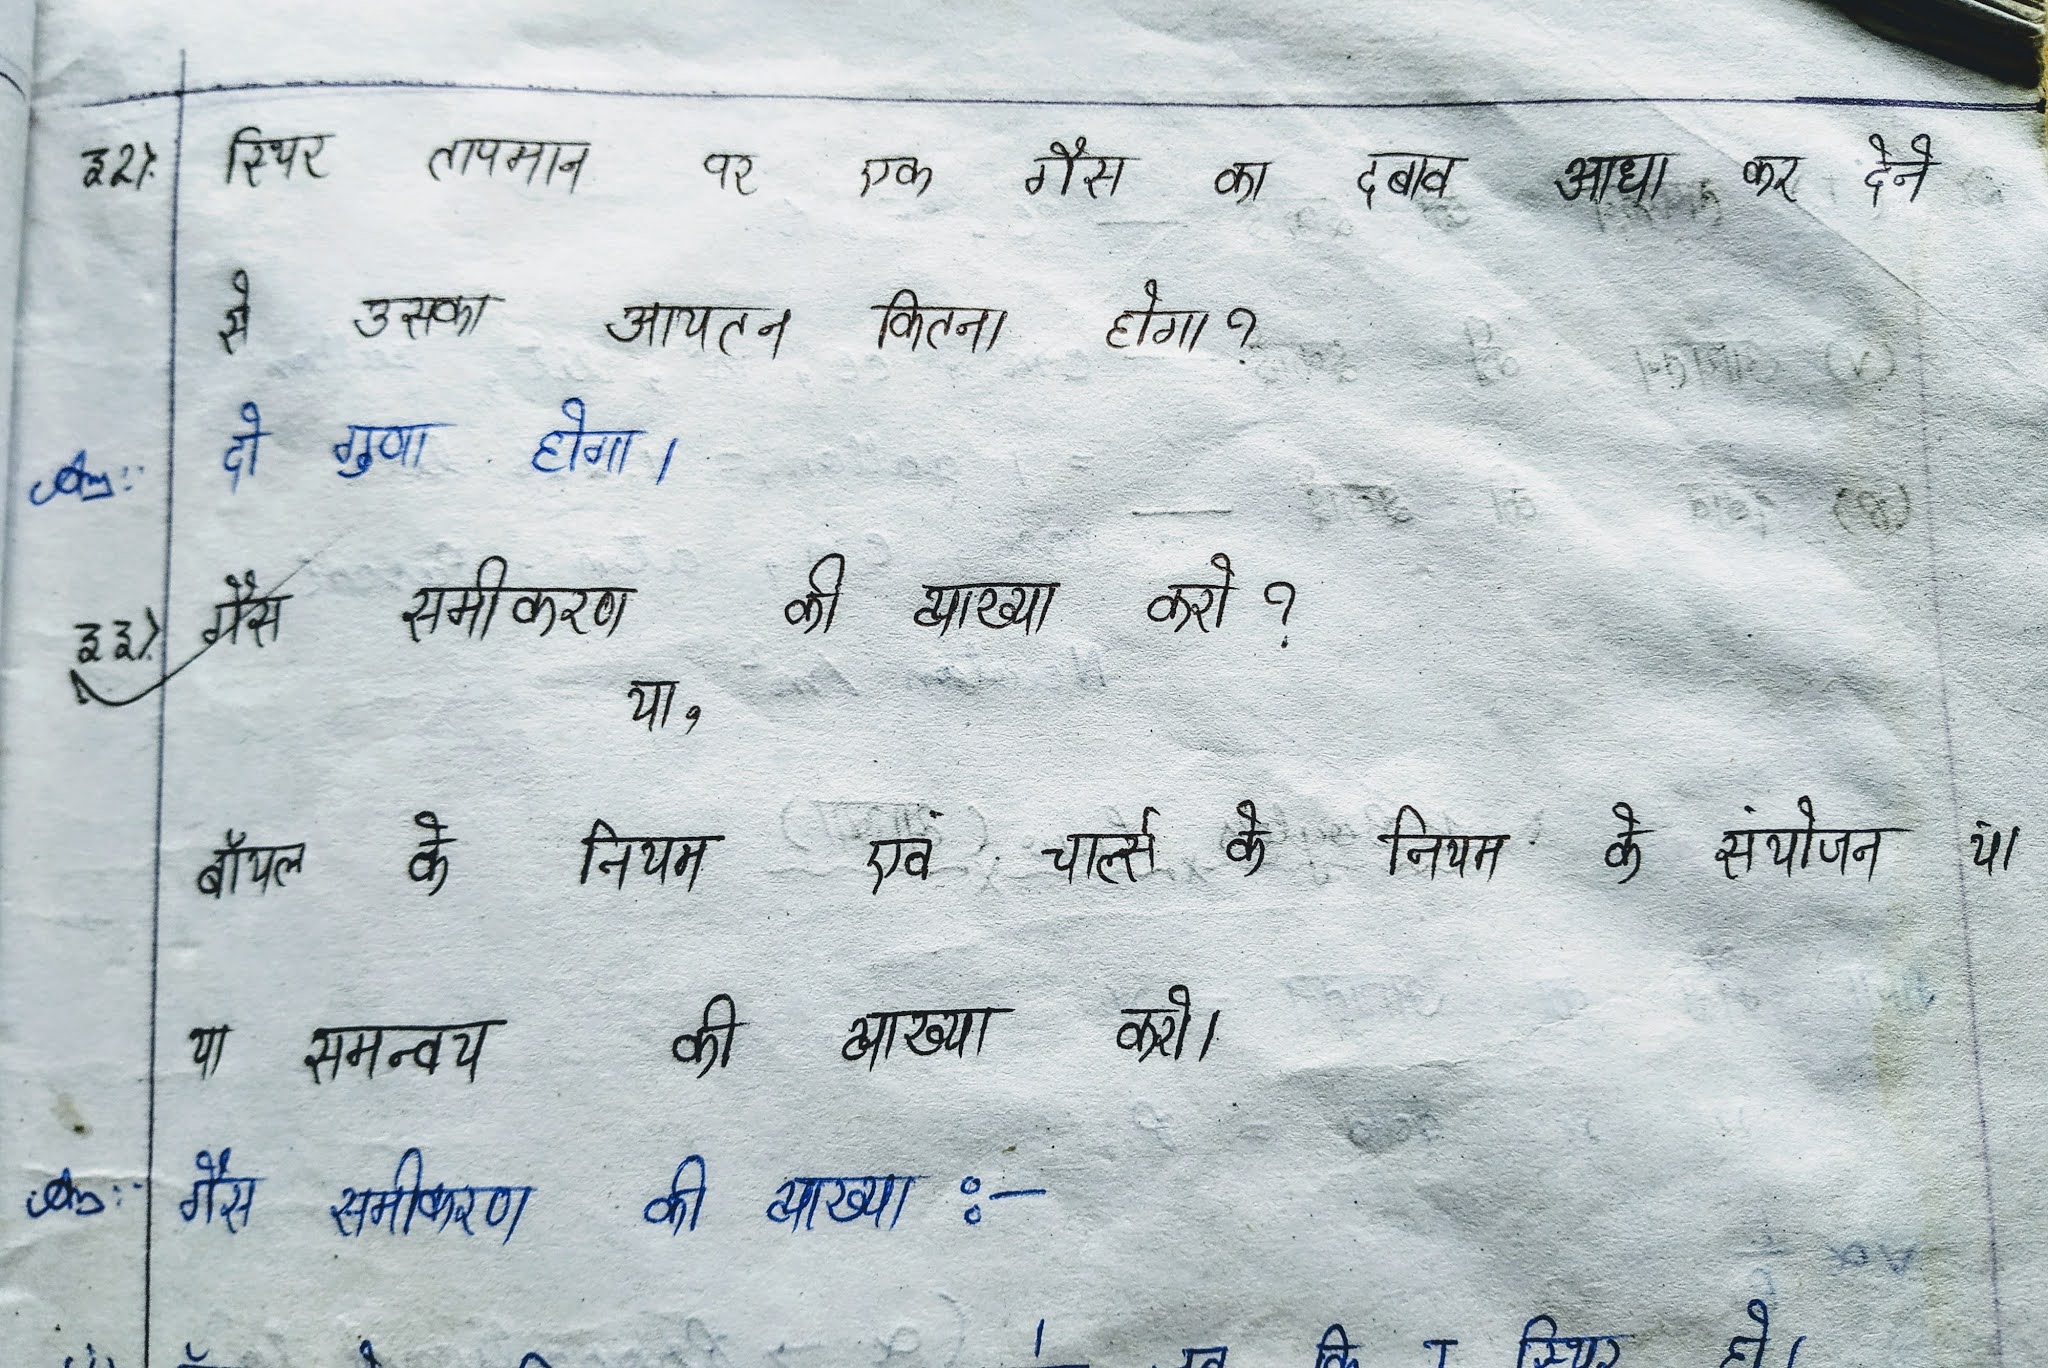 ३२). स्थिर तापमान पर एक गैस का दबाव आधा कर देने
से उसका आयतन कितना होगा?
Ans:- दो गुणा होगा।
३३). गैस समीकरण की व्याख्या करो?
या,
बॉयल के नियम एवं चार्ल्स के नियम के संयोजन या
या समन्वय की व्याख्या करो।
Ans:- गैस समीकरण की व्याख्या :-
स्थिर हो।